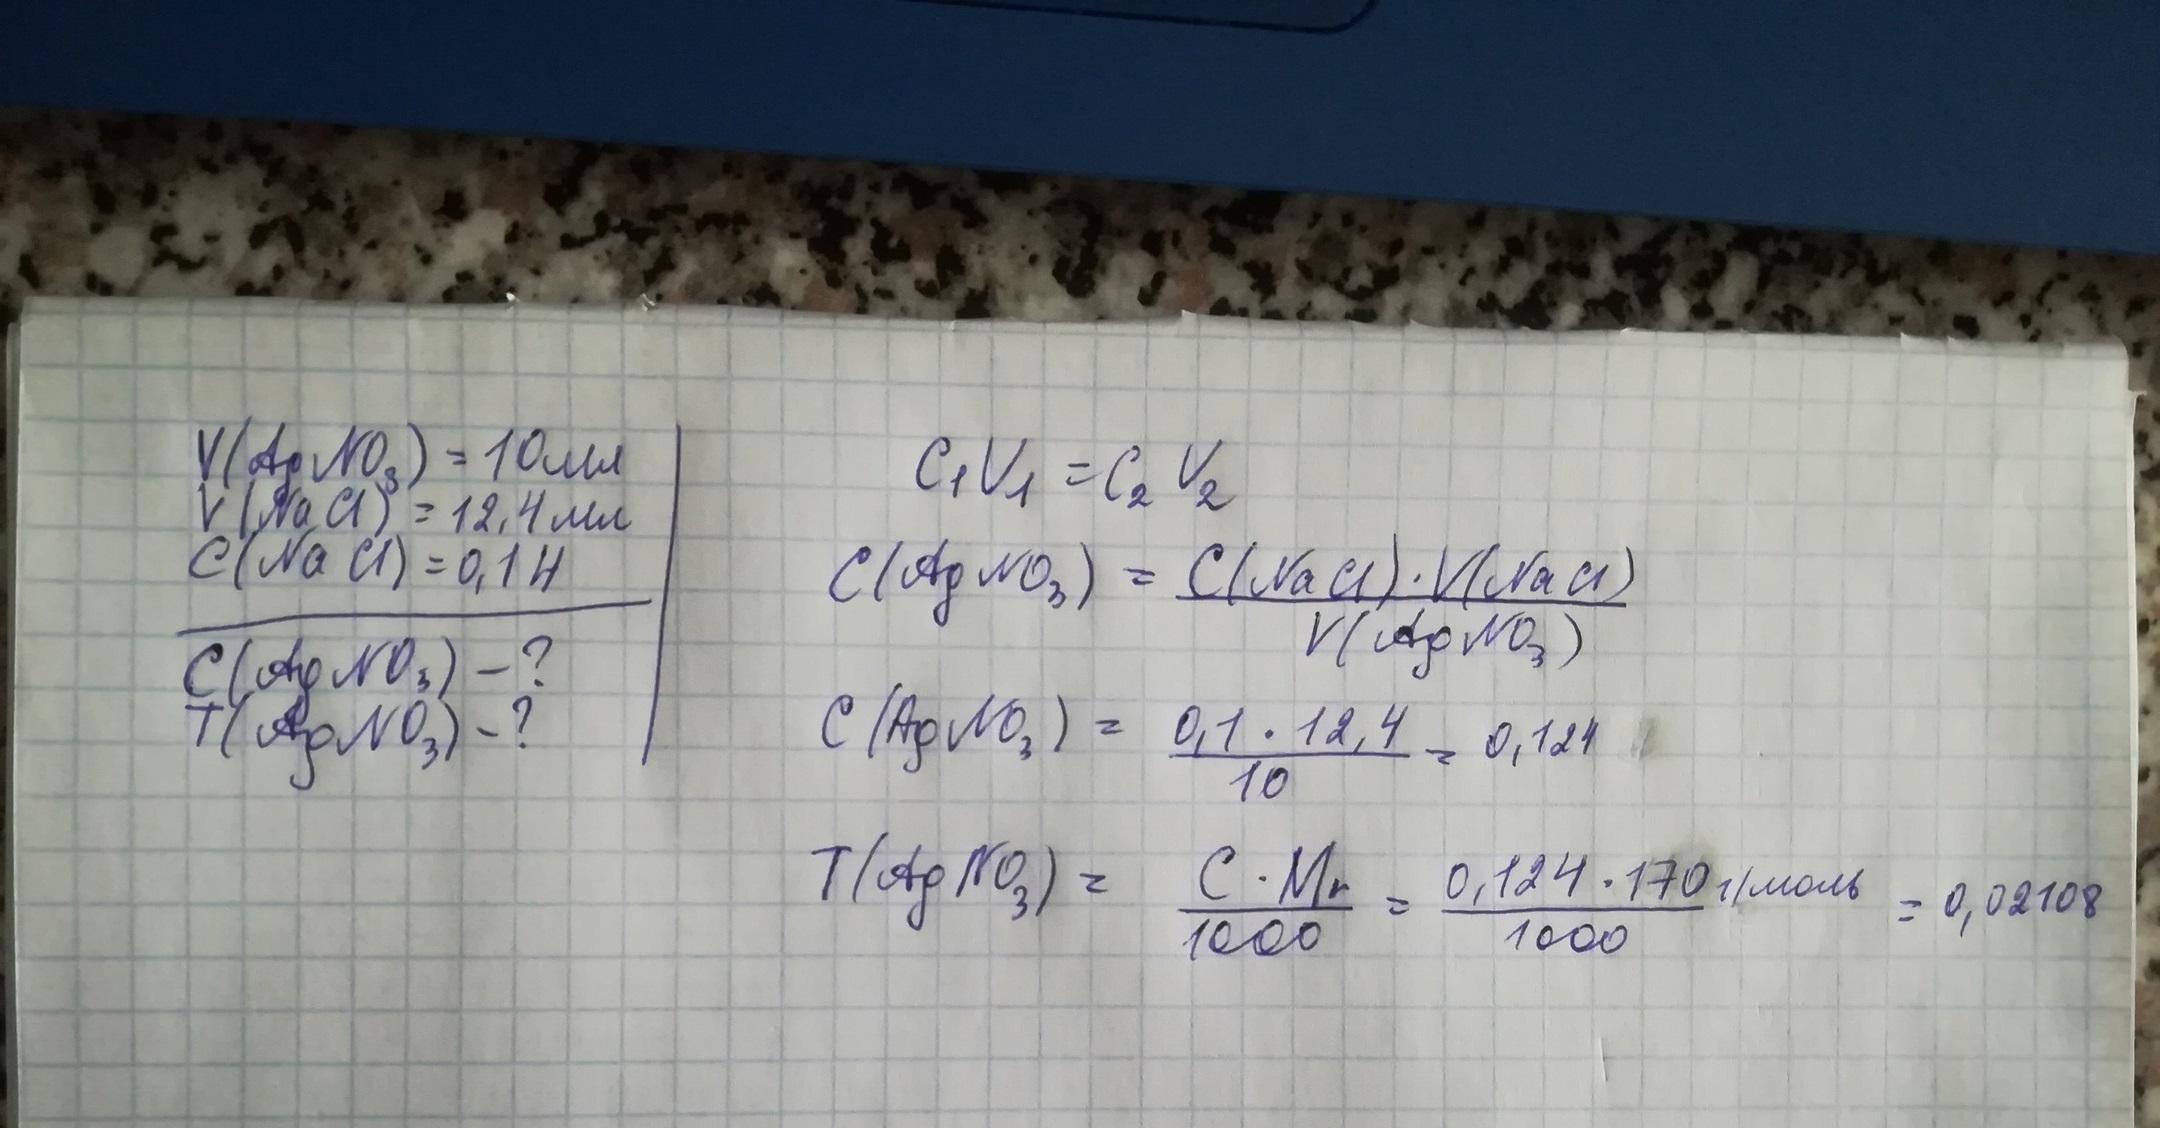 V(AgNO₃) = 10мл
V(NaCl) = 12,4мл
C(NaCl) = 0,1н
C(AgNO₃) – ?
T(AgNO₃) – ?
C₁V₁ = C₂V₂
C(AgNO₃) = C(NaCl)·V(NaCl) / V(AgNO₃)
C(AgNO₃) = 0,1 · 12,4 / 10 = 0,124
T(AgNO₃) = C · Mr / 1000 = 0,124 · 170 г/моль / 1000 = 0,02108